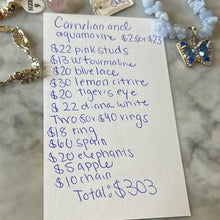 Carnelian and
aquamarine $2 for $23
$22 pink studs
$13 w tourmaline
$20 blue lace
$30 lemon citrite
$20 tiger's eye
$22 diana white
Two for $40 rings
$18 ring
$60 spain
$20 elephants
$5 apple
$10 chain
Total: $303